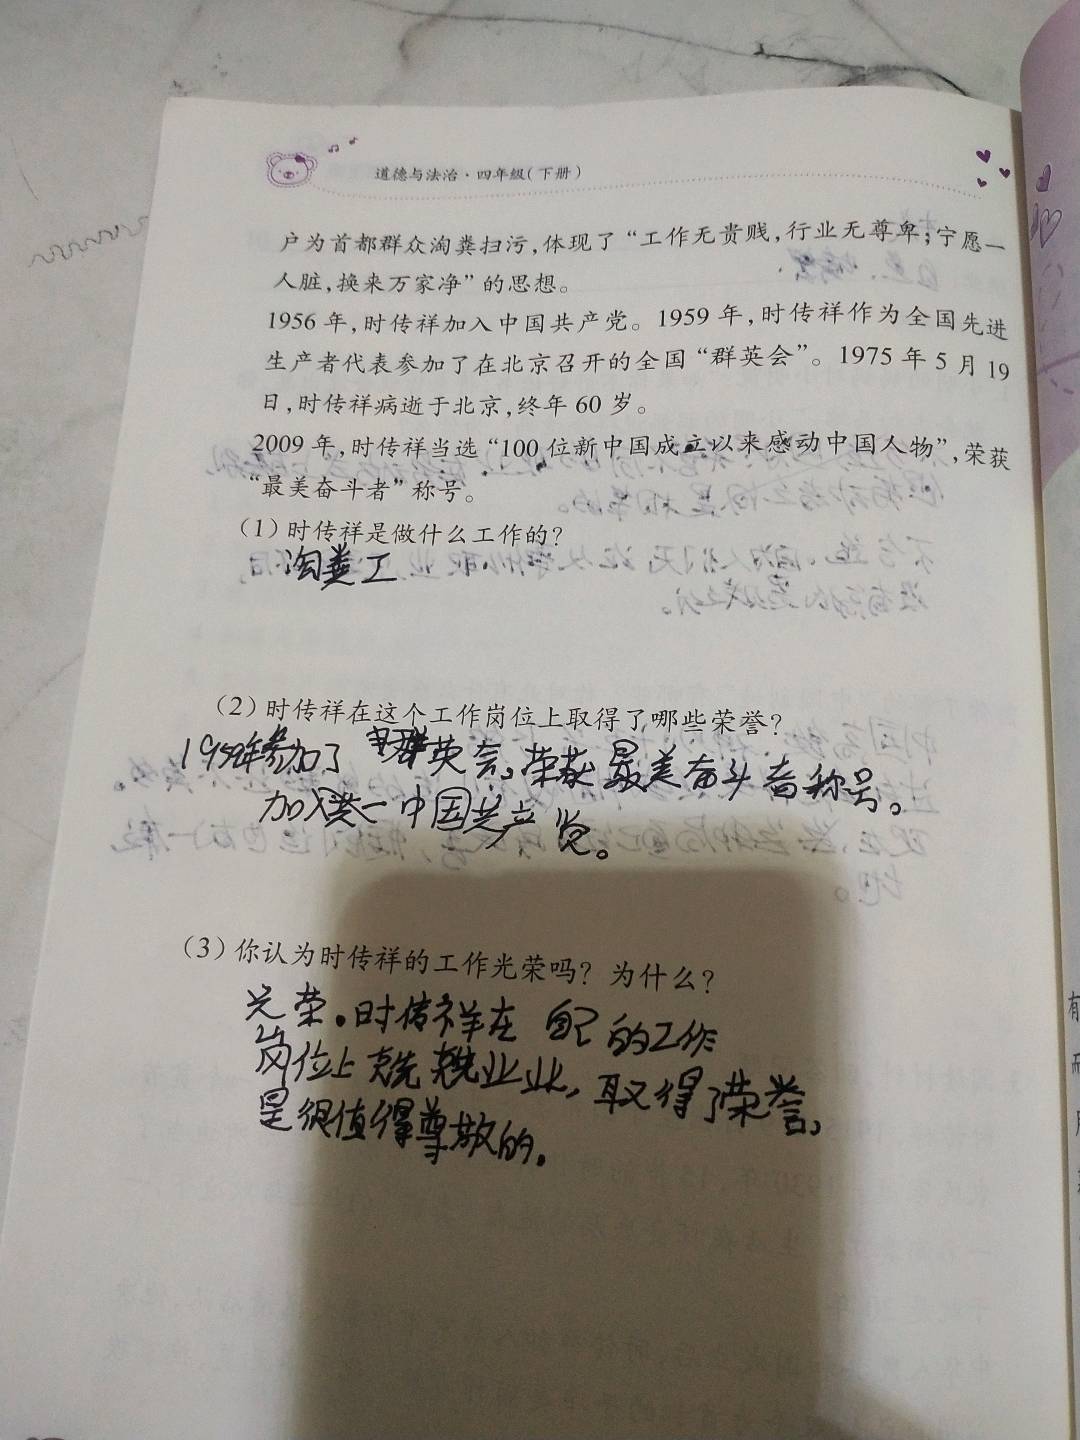 道德与法治·四年级(下册)
户为首都群众淘粪扫污,体现了“工作无贵贱,行业无尊卑;宁愿一
人脏,换来万家净”的思想。
1956年,时传祥加入中国共产党。1959年,时传祥作为全国先进
生产者代表参加了在北京召开的全国“群英会”。1975年5月19
日,时传祥病逝于北京,终年60岁。
2009年,时传祥当选“100位新中国成立以来感动中国人物”,荣获
“最美奋斗者”称号。
(1)时传祥是做什么工作的?
淘粪工
(2)时传祥在这个工作岗位上取得了哪些荣誉?
1959年参加了群英会。荣获最美奋斗者称号。
加入中国共产党。
(3)你认为时传祥的工作光荣吗?为什么?
光荣。时传祥在自己的工作
岗位上兢兢业业,取得了荣誉,
是很值得尊敬的。